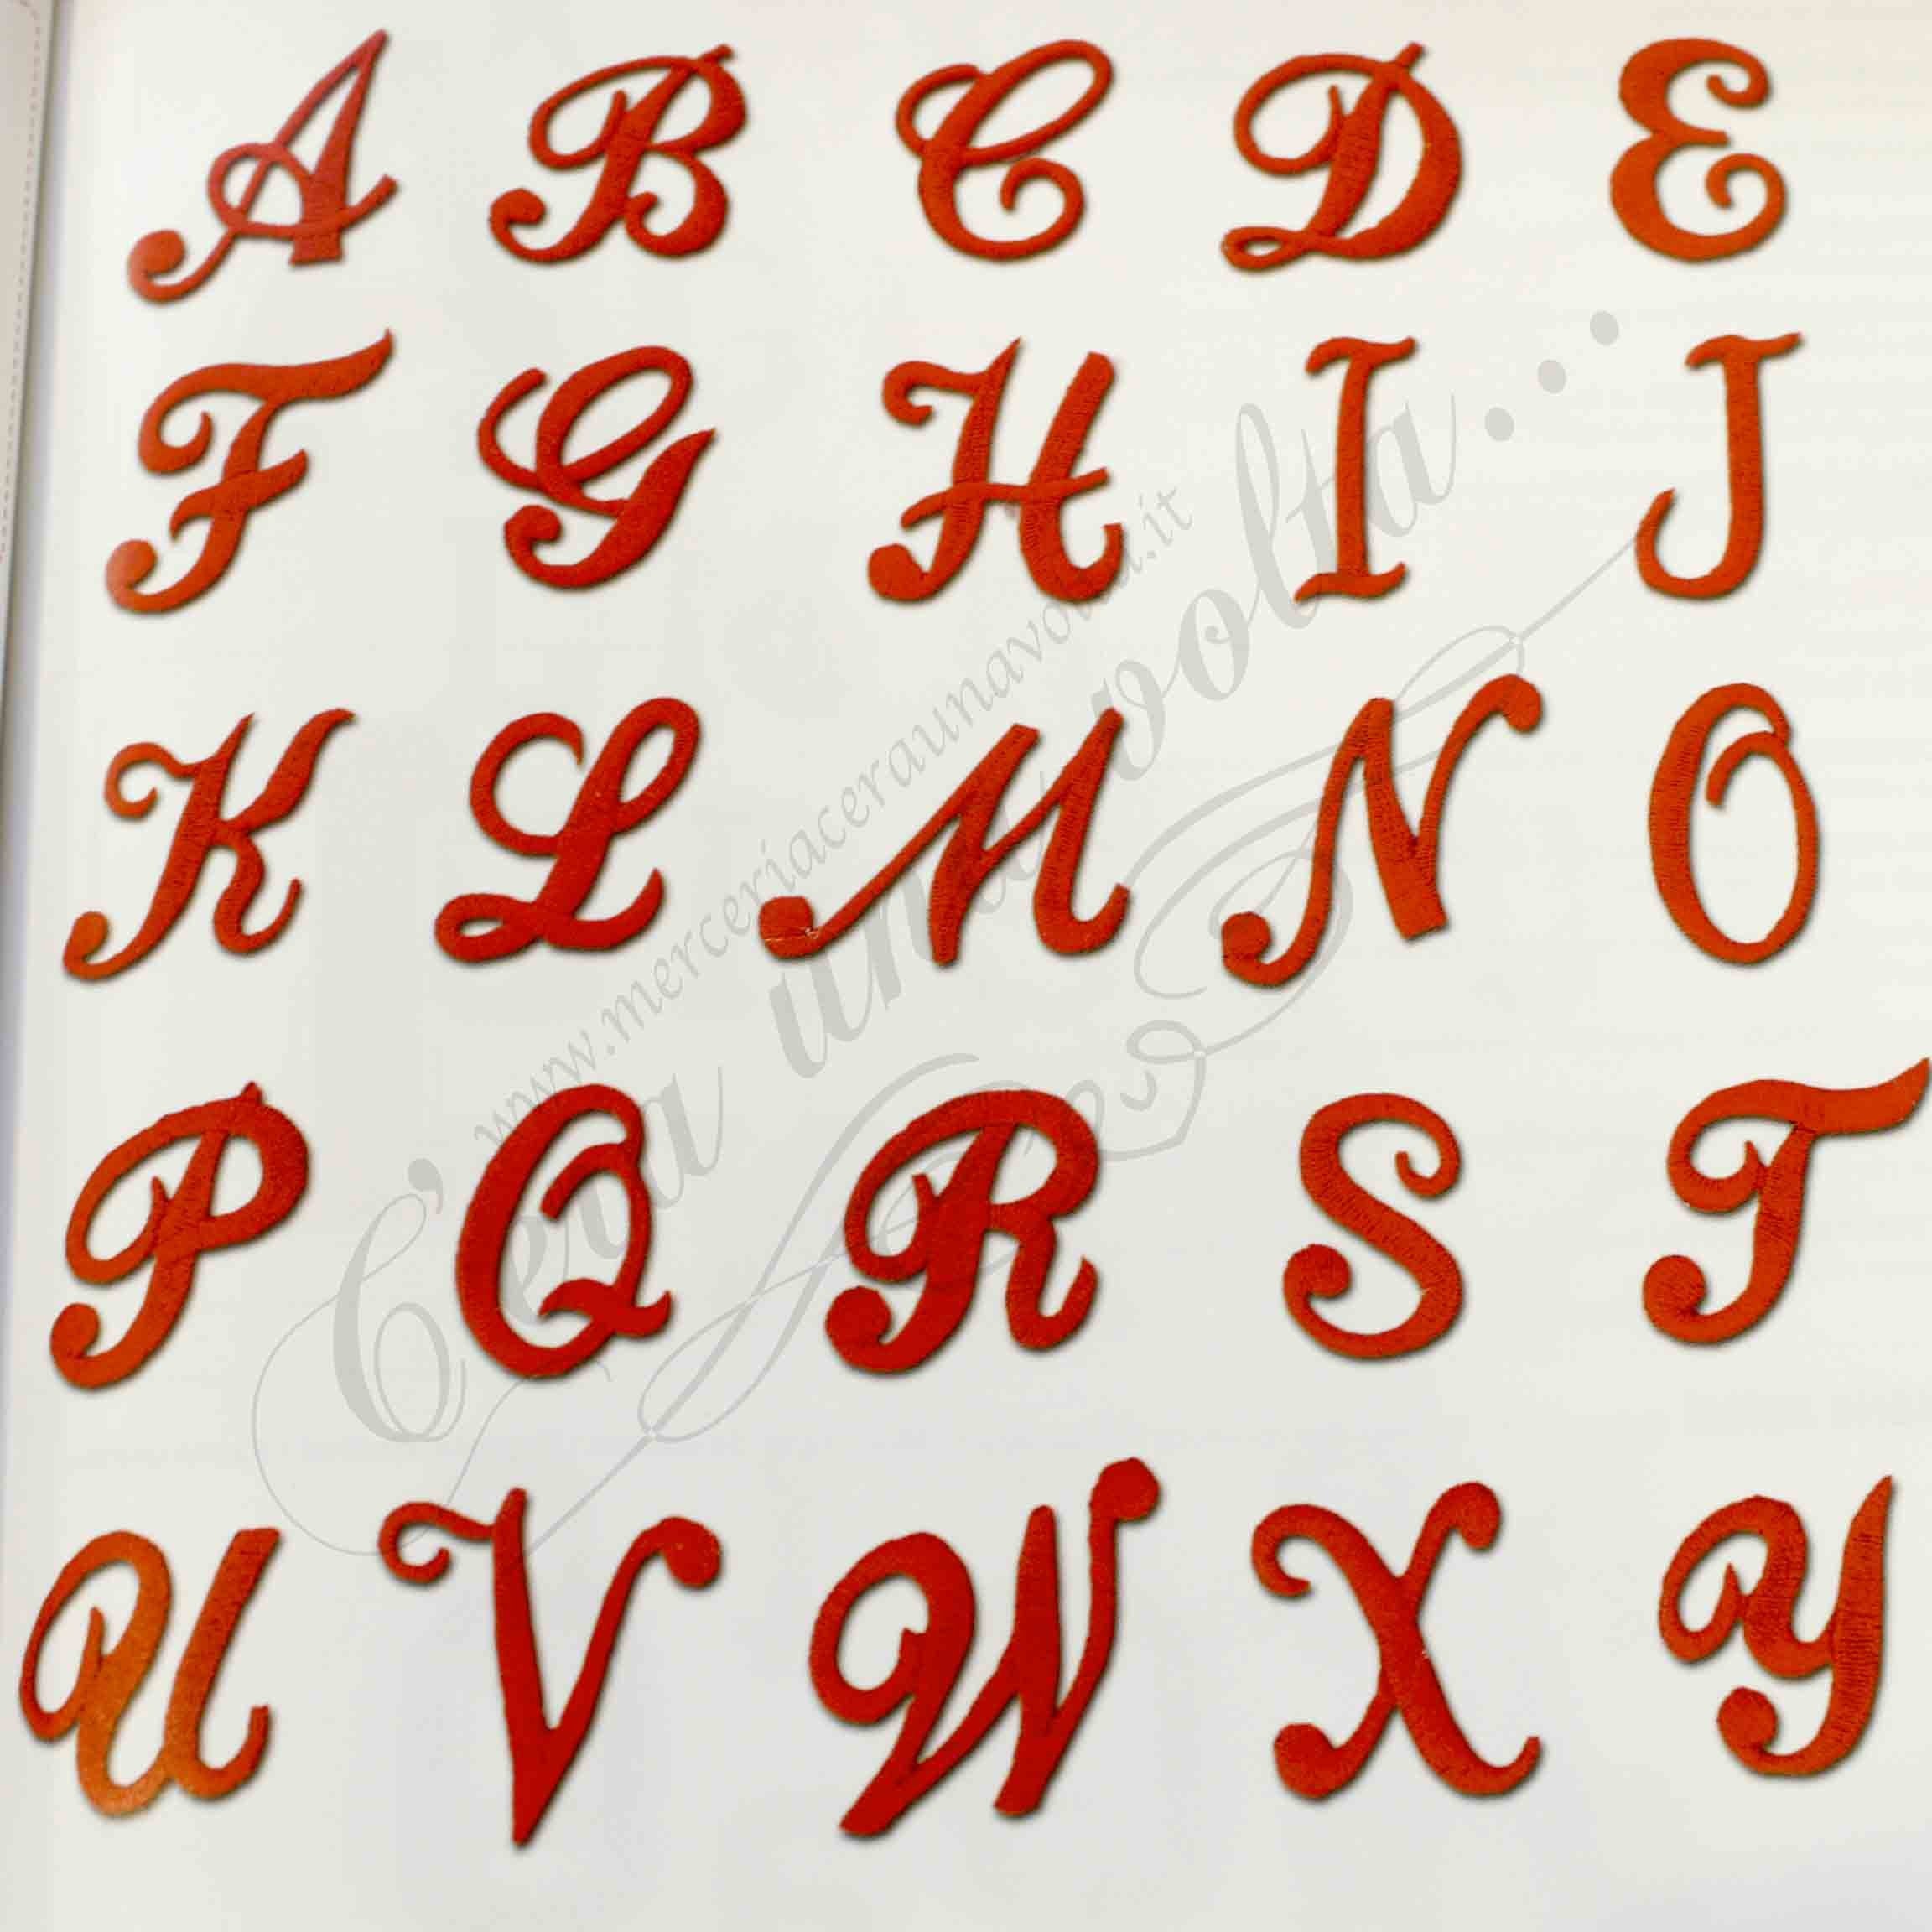 A B C D E
F G H I J
K L M N O
P Q R S T
U V W X Y
www.merceriaceraunavolta.it
C'era una volta...